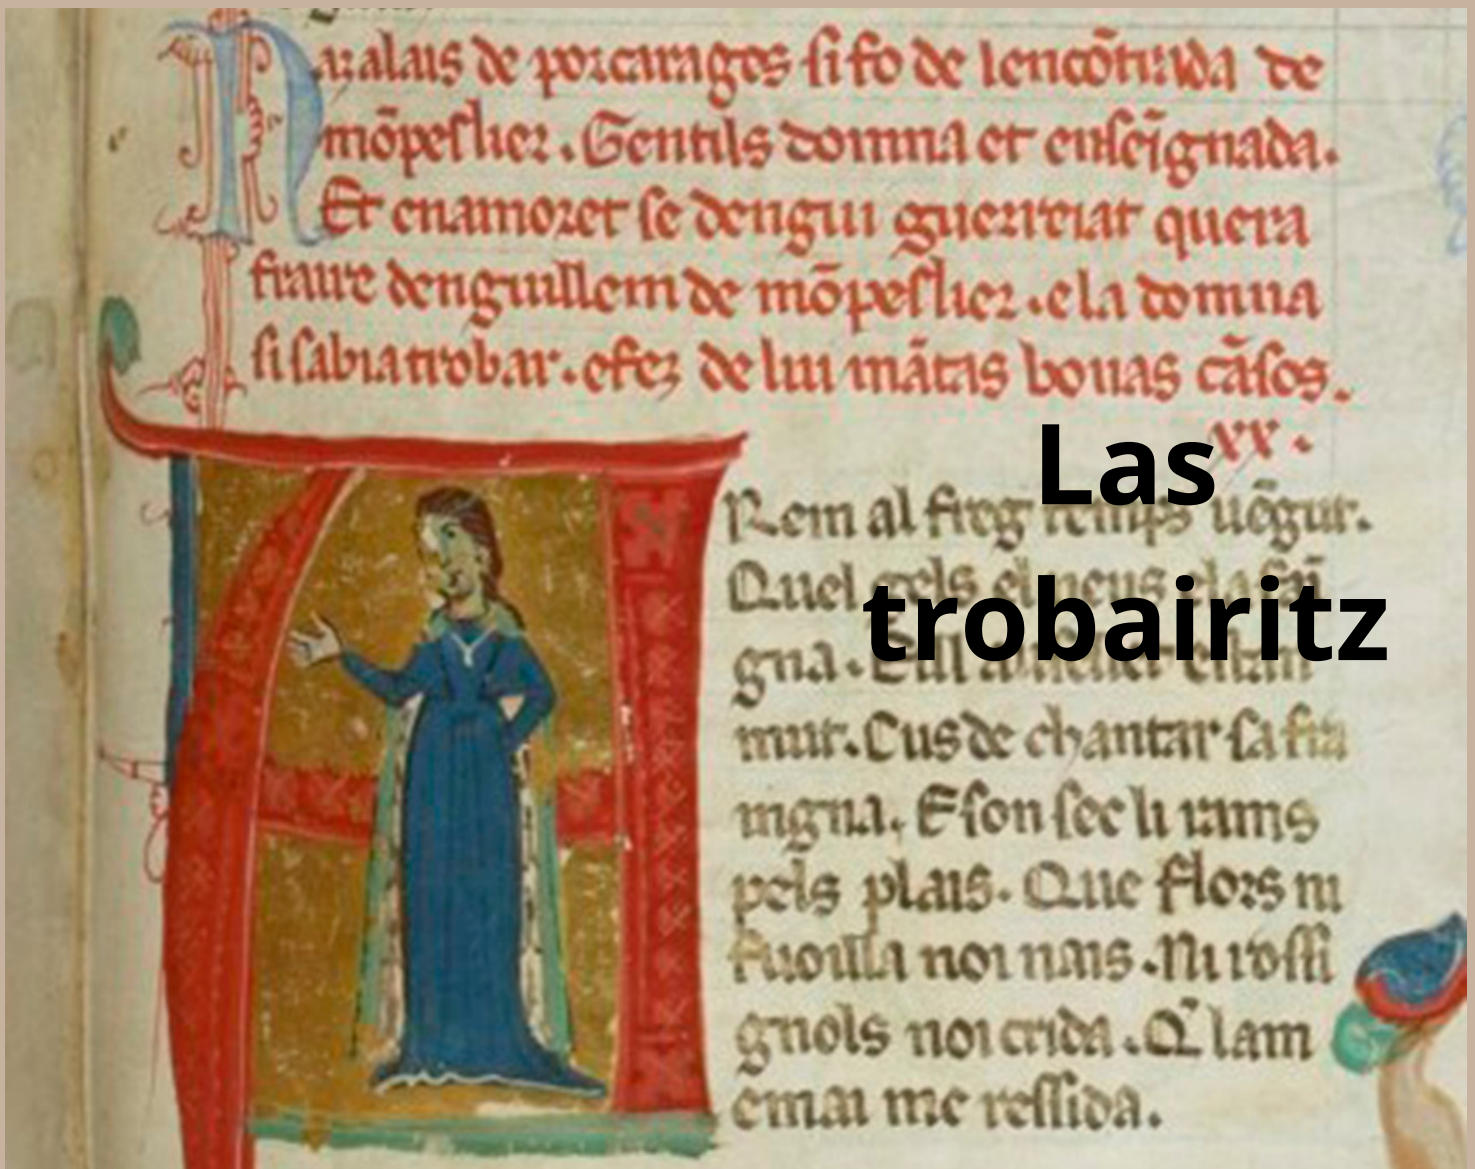 Nazalais de porcarages si fo de lencõtrada de
mõpeslier. Gentils domna et enseignada.
Et enamoret se dengui guerreiat quera
fraire denguillem de mõpeslier. e la domna
si sabia trobar. e fez de lui mãtas bonas cãsos.
xx.
Las
trobairitz
ARem al freg temps uẽgut.
Quel gels el neus e la
gna.
mut. Cus de chantar sa fra
ingna. E son sec li rams
pels plais. Que flors ni
fuoilla noi nais. Ni rossi
gnols noi crida. Q̃ lam
e mai me ressida.